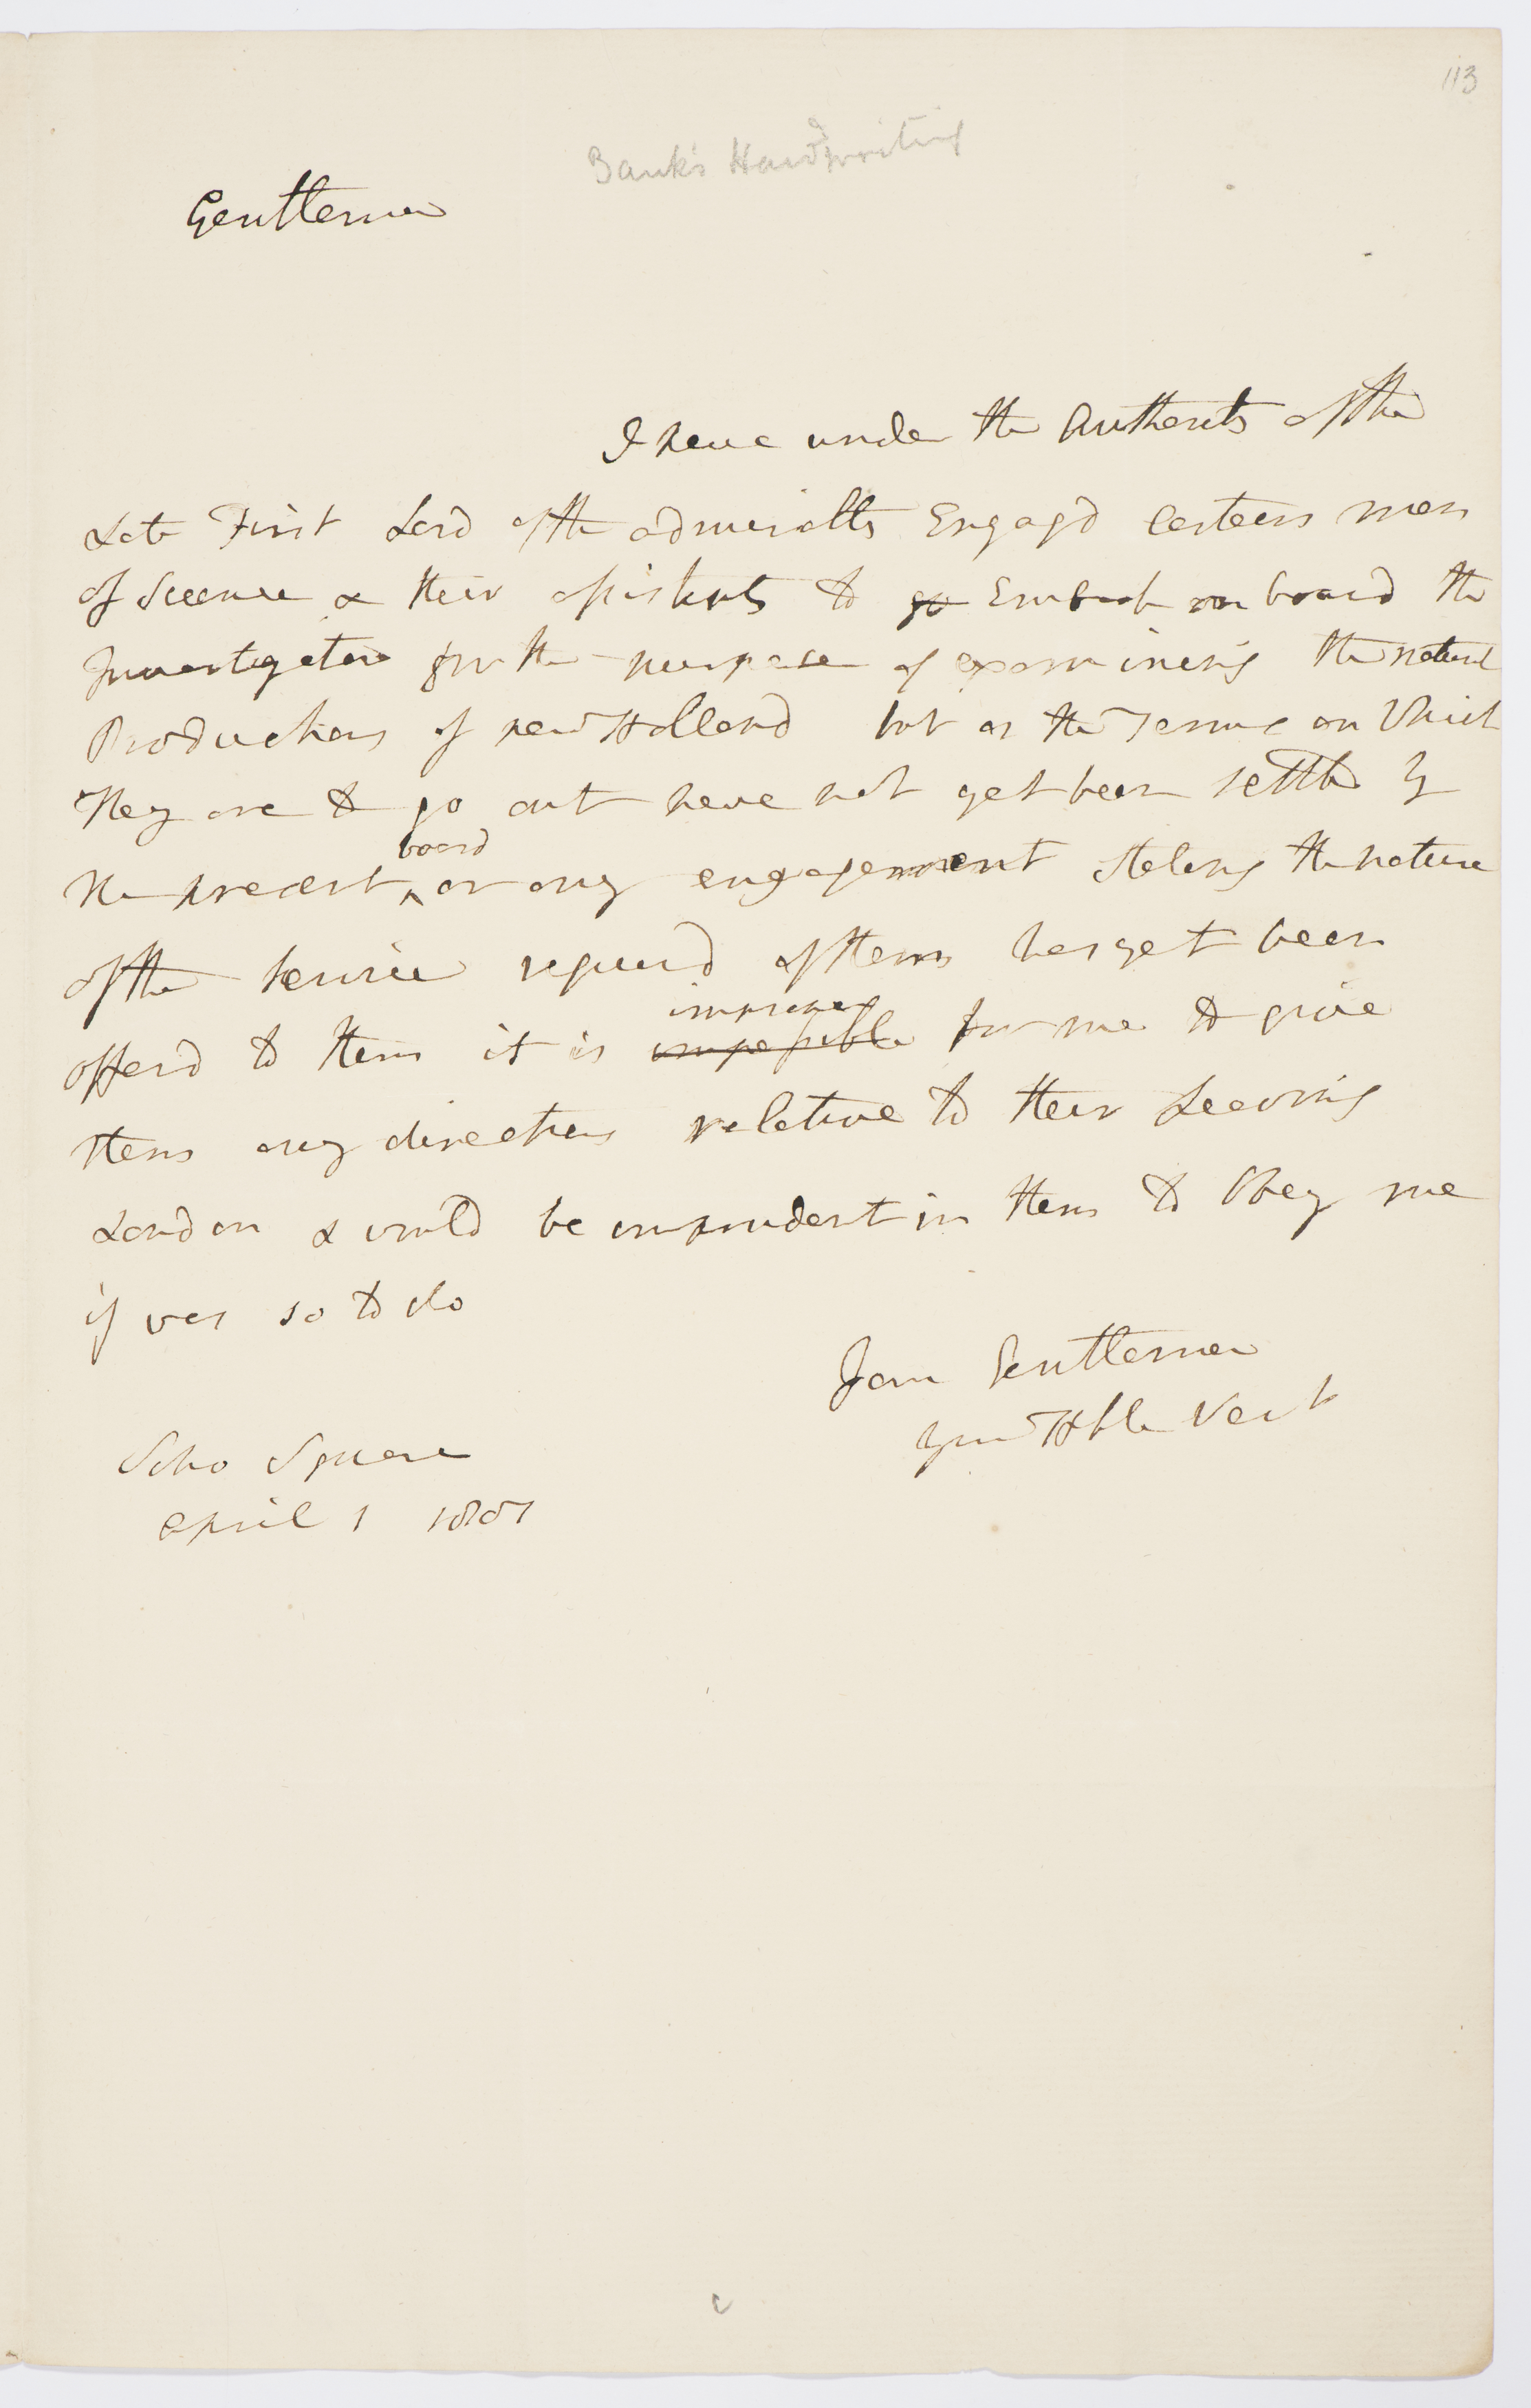 113
Bank's Handwriting
Gentlemen
I have under the Authority of the
Late First Lord of the admiralty Engagd certain men
of Science & their assistants to go Embark on board the
Investigator for the purpose of examining the natural
Productions of new Holland but as the Terms on Which
They are to go out have not yet been settled by
board
the present ^ or any engagement stating the nature
of the service requird of them has yet been
improper
offerd to them it is impossible for me to give
them any directions relative to their Leaving
London & would be imprudent in them to Obey me
if was so to do
I am Gentlemen
your Hble Servt
Soho Square
april 1 1801